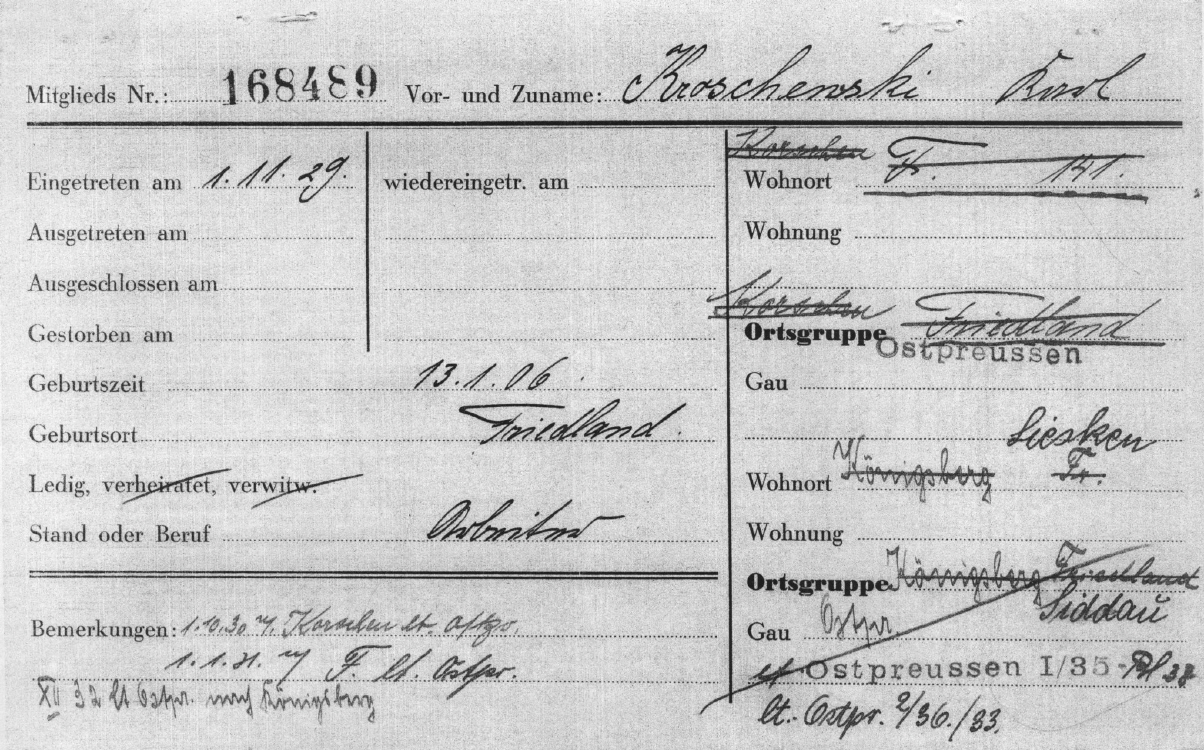 Mitglieds Nr.: 168489 Vor- und Zuname: Kroschewski Karl
Eingetreten am 1.11.29. wiedereingetr. am
Ausgetreten am
Ausgeschlossen am
Gestorben am
Geburtszeit 13.1.06.
Geburtsort Friedland.
Ledig, verheiratet, verwitw.
Stand oder Beruf Arbeiter
Bemerkungen: 1.10.30 Korschen lt.
1.1.31. F. lt. Ostpr.
XII 32 lt Ostpr. nach Königsberg
Korschen
Wohnort F. 141.
Wohnung
Korschen
Ortsgruppe Friedland
Ostpreussen
Gau
Liesken
Wohnort Königsberg Fr.
Wohnung
Ortsgruppe Königsberg Friedland
Siddau
Gau Ostpr
lt Ostpreussen I/35 - Bl 38
lt. Ostpr. 2/36./33.